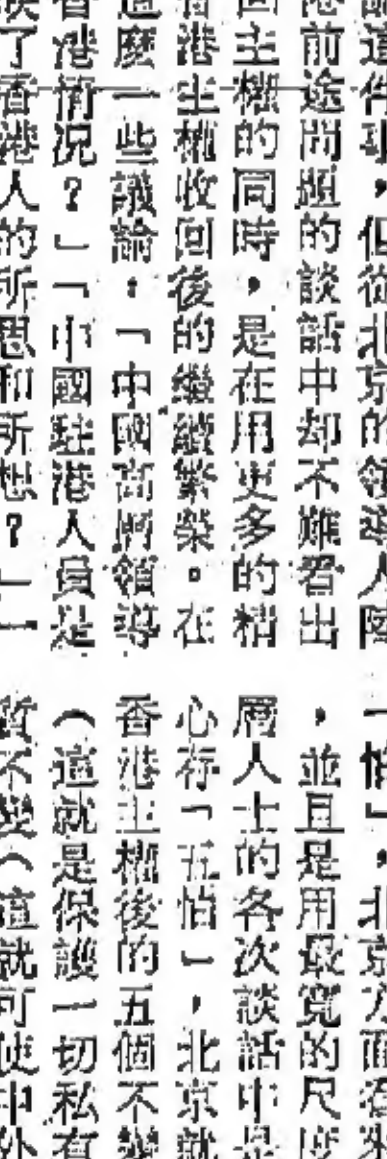 這件事，但從北京的領導人陸
港前途問題的談話中却不難看出
回主權的同時，是在用更多的精
香港主權收回後的繼續繁榮。在
這麼一些議論：「中國高層領導
香港情況？」「中國駐港人員是
了香港人的所思和所想？」「
一怕」，北京方面看來
，並且是用最寬的尺度
層人士的各次談話中是
心存「五怕」，北京就
香港主權後的五個不變
（這就是保護一切私有
質不變（這就可使中外